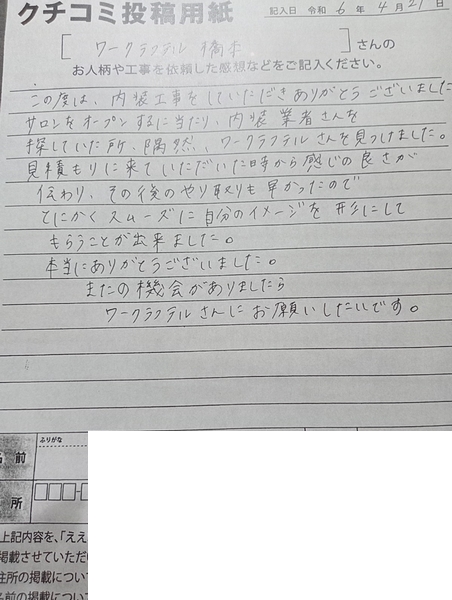 クチコミ投稿用紙
記入日 令和 6 年 4 月 21 日
[ ワークラフテル 橋本 ] さんの
お人柄や工事を依頼した感想などをご記入ください。
この度は、内装工事をしていただきありがとうございました
サロンをオープンするに当たり、内装業者さんを
探していた所、隅然、ワークラフテルさんを見つけました。
見積もりに来ていただいた時から感じの良さが
伝わり、その後のやり取りも早かったので
とにかくスムーズに自分のイメージを形にして
もらうことが出来ました。
本当にありがとうございました。
またの機会がありましたら
ワークラフテルさんにお願いしたいです。
ふりがな
名 前
所
上記内容を、「ええ
掲載させていただ
住所の掲載につい
名前の掲載につい